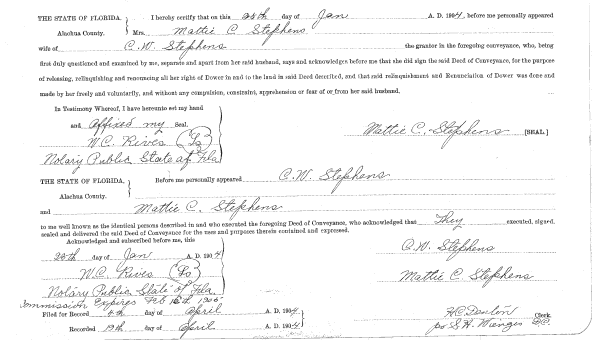 THE STATE OF FLORIDA, } I hereby certify that on this 28th day of Jan A. D. 1904, before me personally appeared
Alachua County. } Mrs. Mattie C Stephens
wife of C. W. Stephens the grantor in the foregoing conveyance, who, being
first duly questioned and examined by me, separate and apart from her said husband, says and acknowledges before me that she did sign the said Deed of Conveyance, for the purpose
of releasing, relinquishing and renouncing all her right of Dower in and to the land in said Deed described, and that said relinquishment and Renunciation of Dower was done and
made by her freely and voluntarily, and without any compulsion, constraint, apprehension or fear of or from her said husband.
In Testimony Whereof, I have hereunto set my hand
and affixed my Seal.
W. C. Rives (Ls)
Mattie C. Stephens [SEAL]
Notary Public State of Fla
THE STATE OF FLORIDA, } Before me personally appeared C. W. Stephens
Alachua County. }
and Mattie C. Stephens
to me well known as the identical persons described in and who executed the foregoing Deed of Conveyance, who acknowledged that They executed, signed,
sealed and delivered the said Deed of Conveyance for the uses and purposes therein contained and expressed.
Acknowledged and subscribed before me, this
28th day of Jan A. D. 1904
C. W. Stephens
W. C. Rives (Ls)
Mattie C. Stephens
Notary Public State of Fla.
Commission Expires Feb 16th 1906
Filed for Record day of April A. D. 1904
Clerk.
Recorded 19th day of April A. D. 1904
D.C.